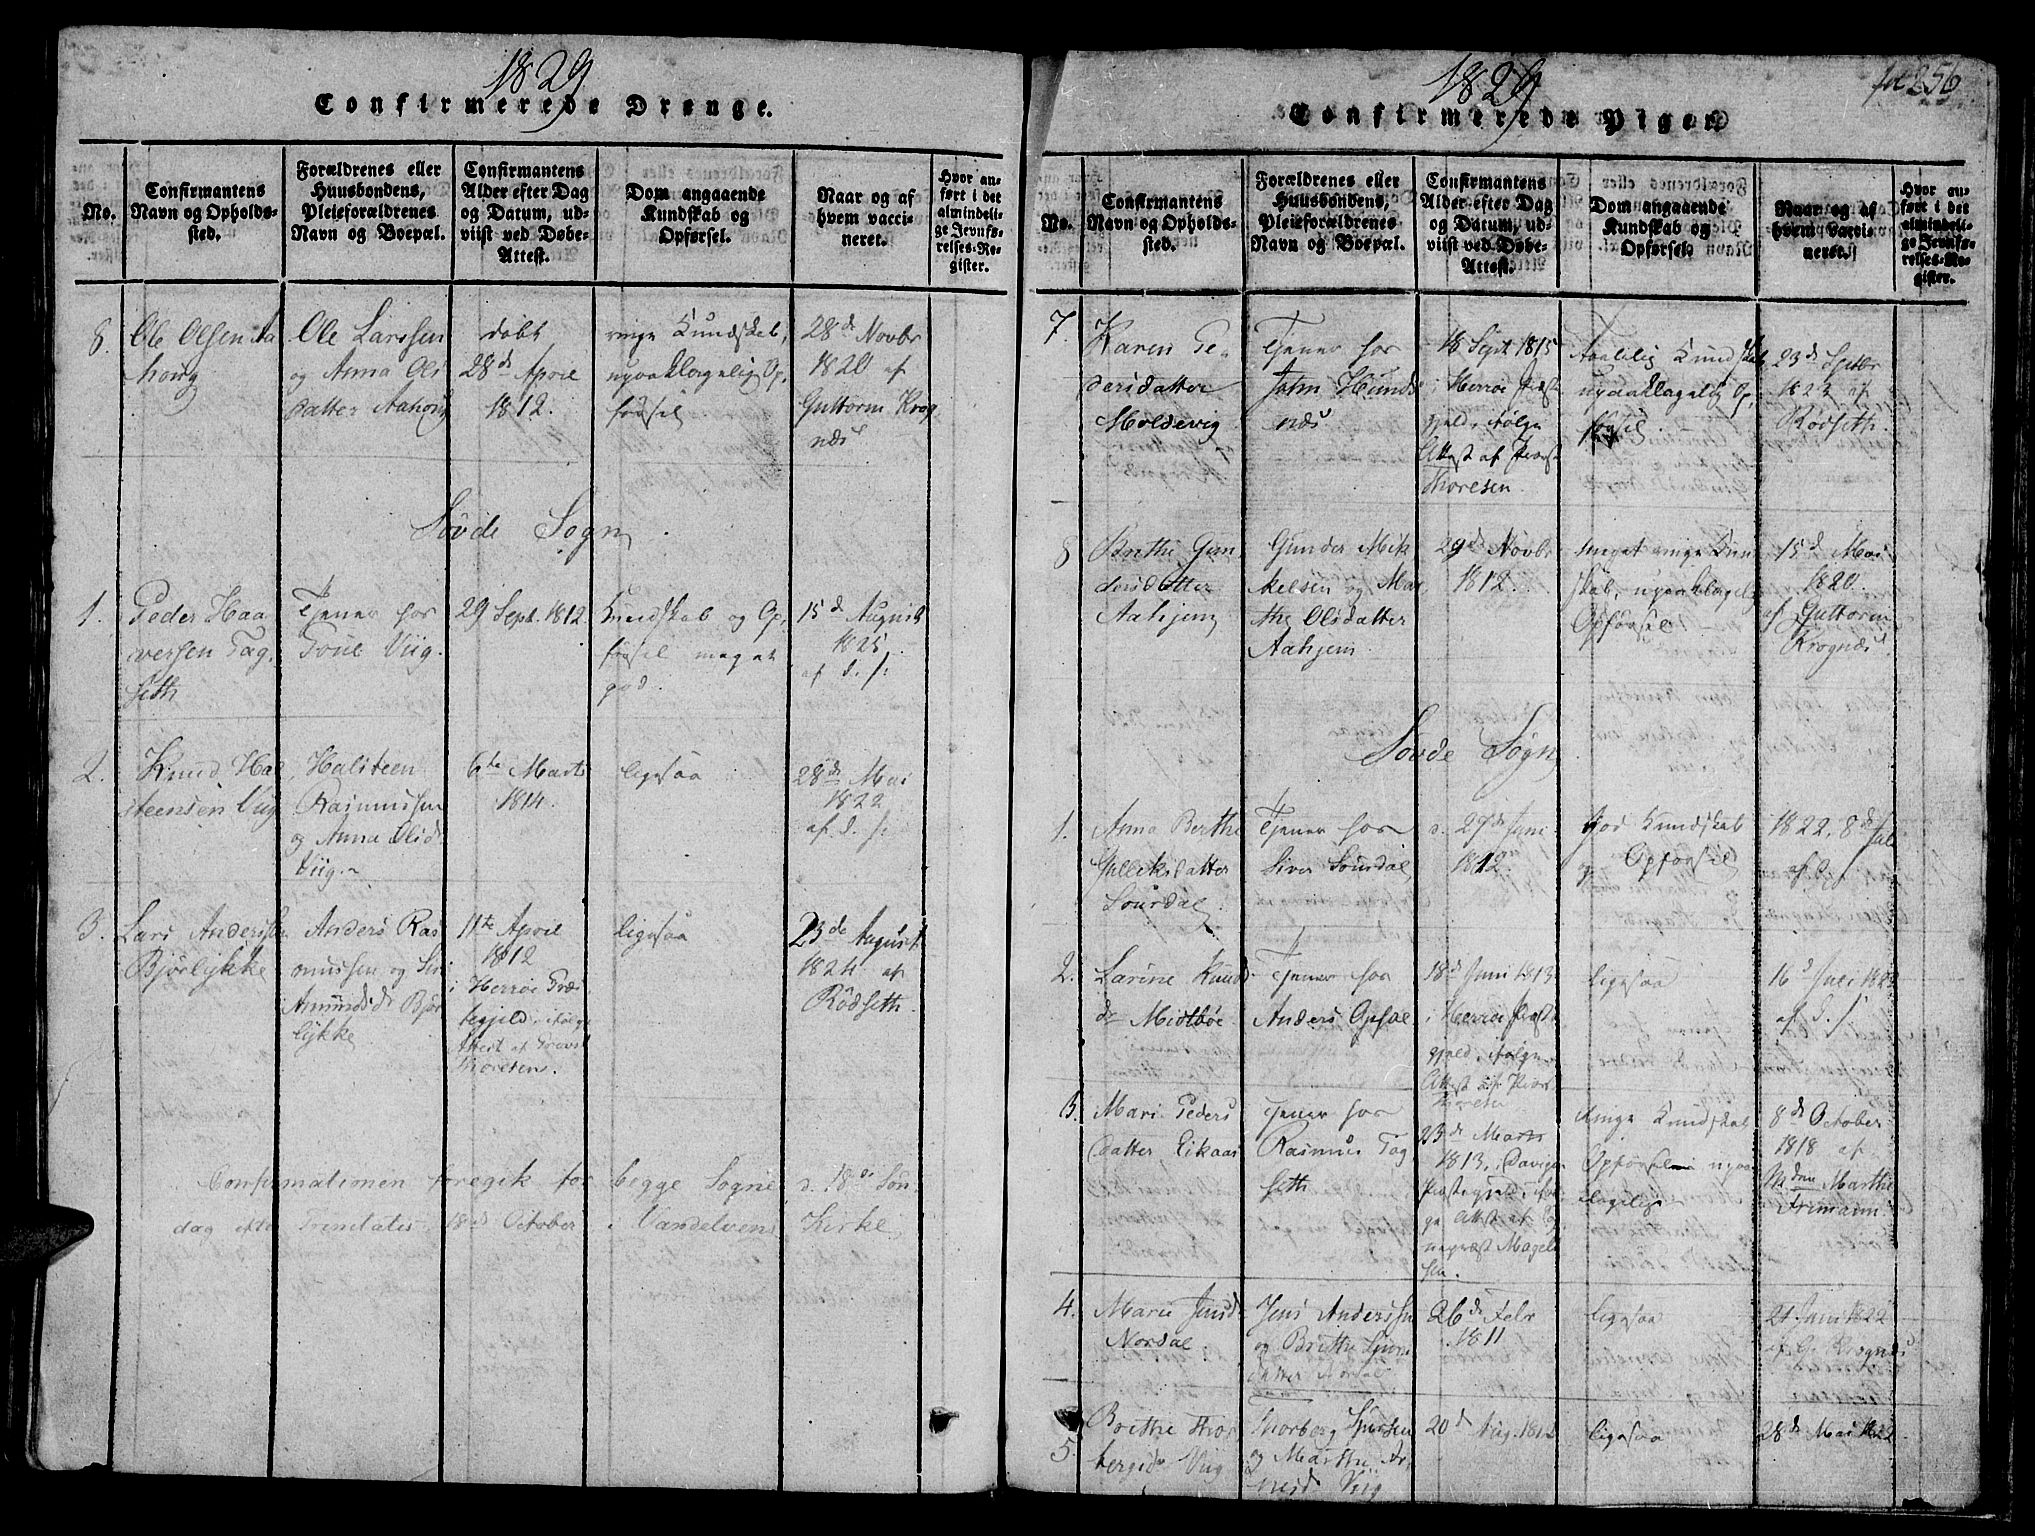 1829
Confirmerede Drenge.
No.
Confirmantens
Navn og Opholds-
sted.
Forældrenes eller
Huusbondens,
Pleieforældrenes
Navn og Boepæl.
Confirmantens
Alder efter Dag
og Datum, ud-
viist ved Døbe-
Attest.
Dom angaaende
Kundskab og
Opførsel.
Naar og af
hvem vacci-
neret.
Hvor an-
ført i det
almindeli-
ge Jevnfø-
relses-Re-
gister.
8.
Ole Olsen Aa
hong
Ole Larssen
og Anna Ols
datter Aahong
døbt
28de April
1812.
ringe Kundskab,
upaaklagelig Op,
førsel
28de Novbr
1820 af
Guttorm Krog
næs
Søvde Sogn
1.
Peder Haa
versen Tag
seth
Tjener for
Toue Viig.
29 Sept. 1812.
Kundskab og Op,
førsel meget
god.
15d August
1825
af d. s:
2.
Knud Hal
steensen Viig
Halsteen
Rasmussen
og Anna Olsd
Viig.
6te Marts
1814.
ligesaa
28de Mai
1822
af d. s:
3.
Lars Anderssen
Bjørlykke
Anders Ras
mussen og Siri
Amundsdr Bjør
lykke
11te April
1812
i Herrøe Præ
stegjeld, ifølge
Attest af Provst
Thoresen.
ligesaa
23de August
1824 af
Rødseth.
Confirmationen foregik for begge Sogne d. 18de Søn
dag efter Trinitatis, 18de October i Vandelvens Kirke
1829
fol 256
Confirmerede Piger.
No.
Confirmantens
Navn og Opholds-
sted.
Forældrenes eller
Huusbondens,
Pleieforældrenes
Navn og Boepæl.
Confirmantens
Alder efter Dag
og Datum, ud-
viist ved Døbe-
Attest.
Dom angaaende
Kundskab og
Opførsel.
Naar og af
hvem vacci-
neret.
Hvor an-
ført i det
almindeli-
ge Jevnfø-
relses-Re-
gister.
7.
Karen Pe
dersdatter
Moldevig
Tjener for
John Hunds
næs
18 Sept 1815
i Herrøe Præste
gjeld, ifølge
Attest af Provst
Thoresen.
Taalelig Kundskab
upaaklagelig Op,
førsel.
23de Septbr
1823 af
Rødseth.
8
Brithe Gun
dersdatter
Aahjem
Gunder Mik
kelsen og Mar
the Olsdatter
Aahjem
29de Novbr
1812.
meget ringe Kund
skab, upaaklagelig
Opførsel
15d Mai
1820.
af Guttorm
Krognæs
Søvde Sogn
1.
Anna Berthe
Gulleksdatter
Sørdal
Tjener for
Siver Sørdal
d. 29de Juni
1812.
god Kundskab
og Opførsel
1822, 8de Juli
af d. s
2.
Larine Knuds
dr Midtbøe
Tjener for
Anders Opsal
18d Juni 1813
i Herrøe Præste
gjeld, ifølge
Attest af Provst
Thoresen
ligesaa
16d Juli 1822
af d. s
3.
Mari Peders
datter Eikaas
Tjener for
Rasmus Tag
seth
23de Marts
1813, i Davigens
Præstegjeld, ifølg
ge Attest af Sog
nepræst Magels
sen.
Ringe Kundskab
Opførsel upaa
klagelig
8de October
1818 af
Mdme Marthe
Frimann
4.
Marie Jensdr
Nordal
Jens Anderssen
og Brithe Sjurs
datter Nordal
26de Febr
1811
ligesaa
21 Juni 1822
af G. Krognæs
5
Brithe Thor
bergsdr Viig
Thorberg Sjursen
og Marthe Ar
nesd Viig
20d Aug. 1812
ligesaa
28de Mai 1822